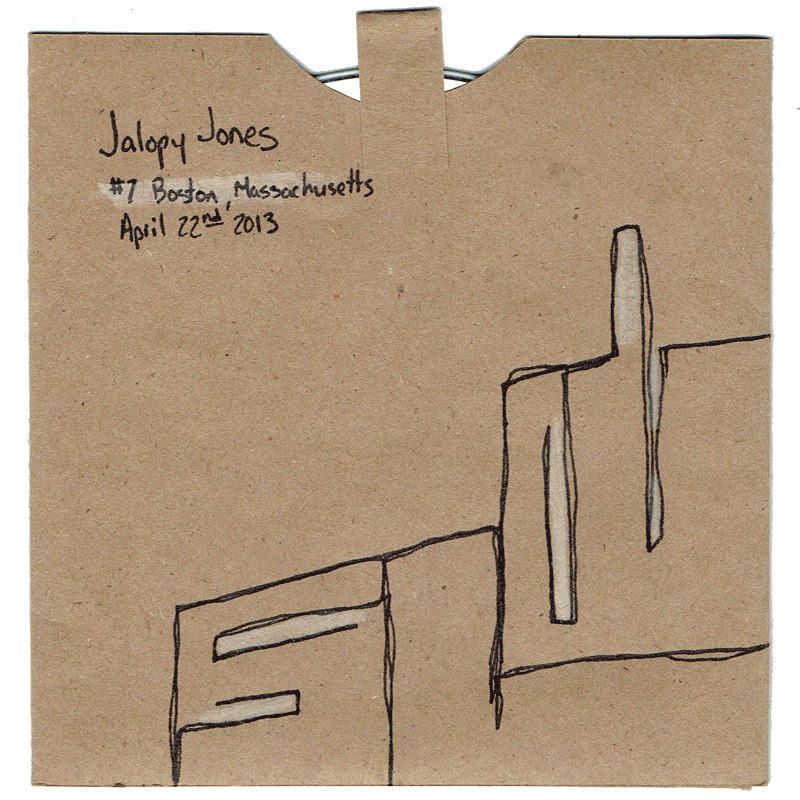 Jalopy Jones
#7 Boston, Massachusetts
April 22nd 2013